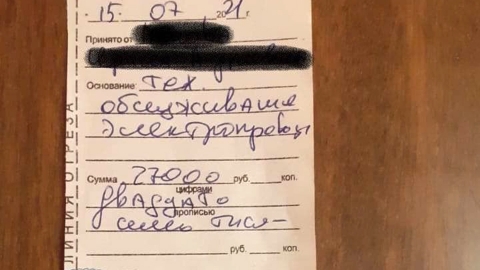 15. 07 2021г.
Принято от
Основание: тех.
обслуживание
электропроводк
Сумма 27000 руб. коп.
цифрами
двадцать
прописью
семь тися-
руб. коп.
ЛИНИЯ ОТРЕЗА